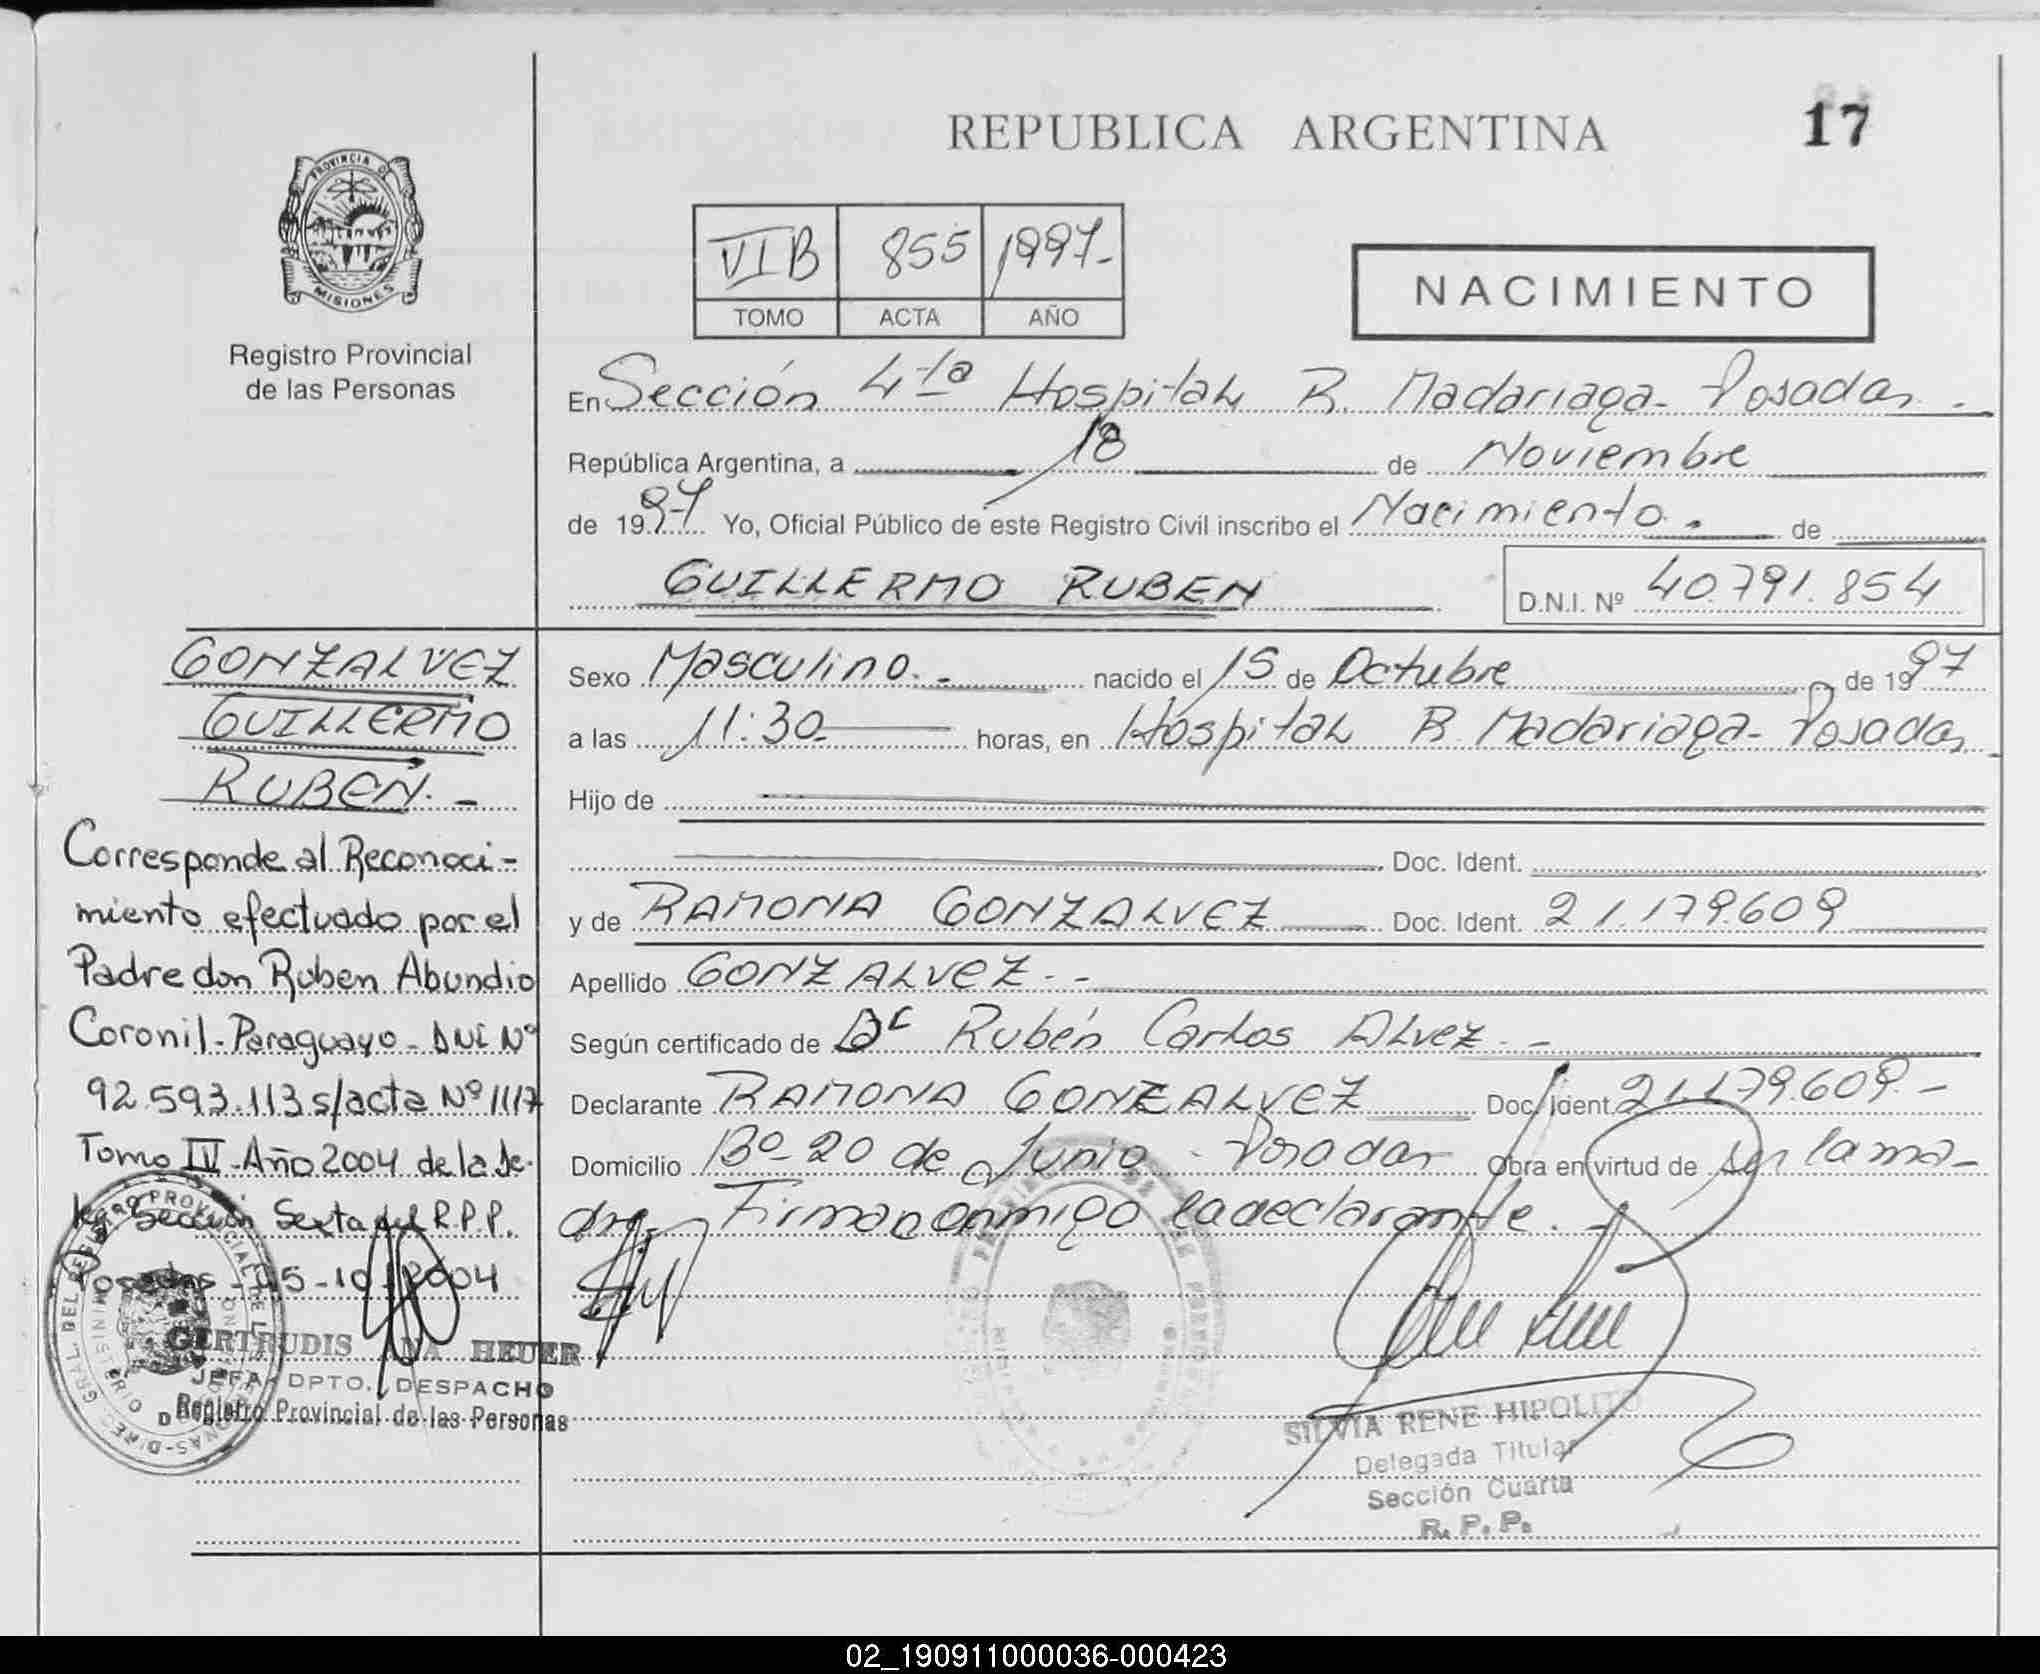 REPUBLICA ARGENTINA
17
PROVINCIA DE
MISIONES
Registro Provincial
de las Personas
VI B 855 1997-
TOMO ACTA AÑO
NACIMIENTO
En Sección 4ta Hospital R. Madariaga - Posadas -
República Argentina, a 18 de Noviembre
de 1997 Yo, Oficial Público de este Registro Civil inscribo el Nacimiento. de
GUILLERMO RUBEN
D.N.I. Nº 40.791.854
GONZALVEZ
GUILLERMO
RUBEN. -
Corresponde al Reconoci-
miento efectuado por el
Padre don Ruben Abundio
Coronil - Paraguayo - DNI Nº
92.593.113 s/acta Nº 1117
Tomo IV - Año 2004 de la De-
leg. Sección Sexta del R.P.P.
Posadas - 15-10-2004
GERTRUDIS ANA HEUER
JEFA DPTO. DESPACHO
Registro Provincial de las Personas
Sexo Masculino. - nacido el 15 de Octubre de 1997
a las 11:30 horas, en Hospital R. Madariaga - Posadas
Hijo de
Doc. Ident.
y de RAMONA GONZALVEZ Doc. Ident. 21.179.609
Apellido GONZALVEZ. -
Según certificado de Dr Rubén Carlos Alvez. -
Declarante RAMONA GONZALVEZ Doc. Ident. 21.179.609. -
Domicilio Bº 20 de Junio - Posadas Obra en virtud de ser la ma-
dre. Firma conmigo la declarante. -
SILVIA RENE HIPOLITO
Delegada Titular
Sección Cuarta
R. P. P.
02_190911000036-000423